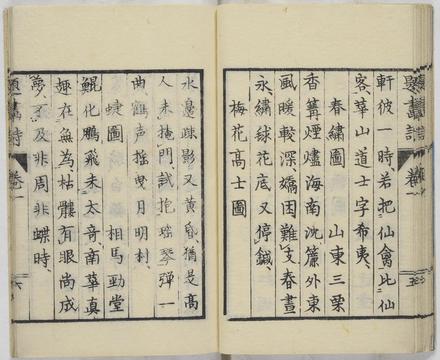 題畫詩 卷一
軒彼一時若把仙禽比仙
客、華山道士字希夷、
春繡圖 山東三栗
香篝煙燼海南沈簾外東
風暖較深嬌困難支春晝
永、繡球花底又停鍼、
梅花高士圖
水邊疎影又黃昏、猶是高
人未掩門試抱瑤琴彈一
曲、鶴声搖曳月明村、
蜨圖 相馬勁堂
鯤化鵬飛未太奇、南華真
趣在魚為、枯髏有眼尚成
夢、不及非周非蝶時、
題畫詩 卷一 六